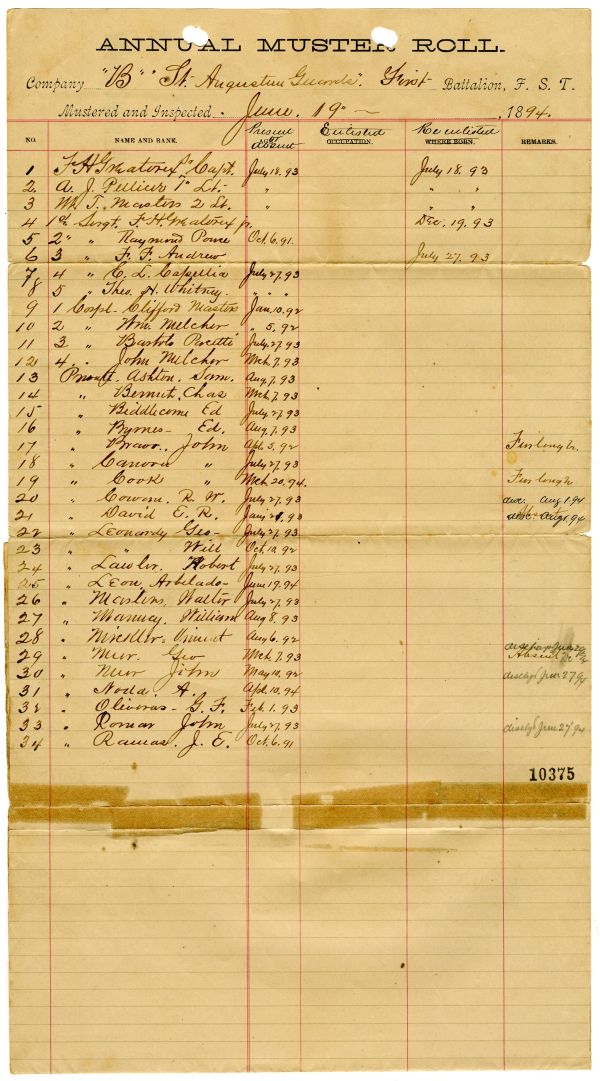 ANNUAL MUSTER ROLL.
Company "B" St. Augustine Guards". First Battalion, F. S. T.
Mustered and Inspected June. 19" 1894.
NO. NAME AND RANK. Present or absent Enlisted OCCUPATION. Re enlisted WHERE BORN. REMARKS.
1 F. H. Greatorex Capt. July 18. 93 July 18. 93
2 A. J. Pellicer 1st Lt. " " "
3 M. T. Masters 2 Lt. " " "
4 1st Sergt. F. H. Greatorex jr. Dec. 19. 93
5 2" " Raymond Ponce Oct. 6. 91.
6 3 " F. F. Andrew July 27. 93
7 4 " C. L. Capellia July 27, 93
8 5 " Theo. H. Whitney. " " "
9 1 Corpl. Clifford Masters Jan. 10. 92
10 2 " Wm. Melcher " 5. 92
11 3 " Bartolo Pacetti July 27. 93
12 4. " John Melcher Mch. 7. 93
13 Private. Ashton. Sam. Aug. 7. 93
14 " Bennet, Chas Mch. 7. 93
15 " Biddlecome Ed July 27. 93
16 " Byrnes - Ed. Aug. 7. 93
17 " Bravo., John Apl. 5. 92 Furlough.
18 " Canova " July 27. 93
19 " Cook " Mch 20. 94. Furlough
20 " Cowan. R. W. July 27. 93 disc. Aug 1 94
21 " David E. R. 93 disc. Aug 1, 94
22 " Leonardy Geo - July 27. 93
23 " " Will Oct. 10. 92
24 " Lawler. Robert July 27. 93
25 " Leon, Arbelado - June 19. 94
26 " Masters, Walter July 27. 93
27 " Manucy, William Aug 8. 93
28 " Mickler, Vincent Aug 6. 92
29 " Muir. Geo Mch. 7. 93 Absent
30 " Muir John May 10. 92 dischgd June 27 94
31 " Noda. A. Apl. 10. 94
32 " Oliveros - G. F. Feb. 1. 93
33 " Pomar John July 27. 93 dischgd June 27 94
34 " Ramas. J. E. Oct. 6. 91
10375